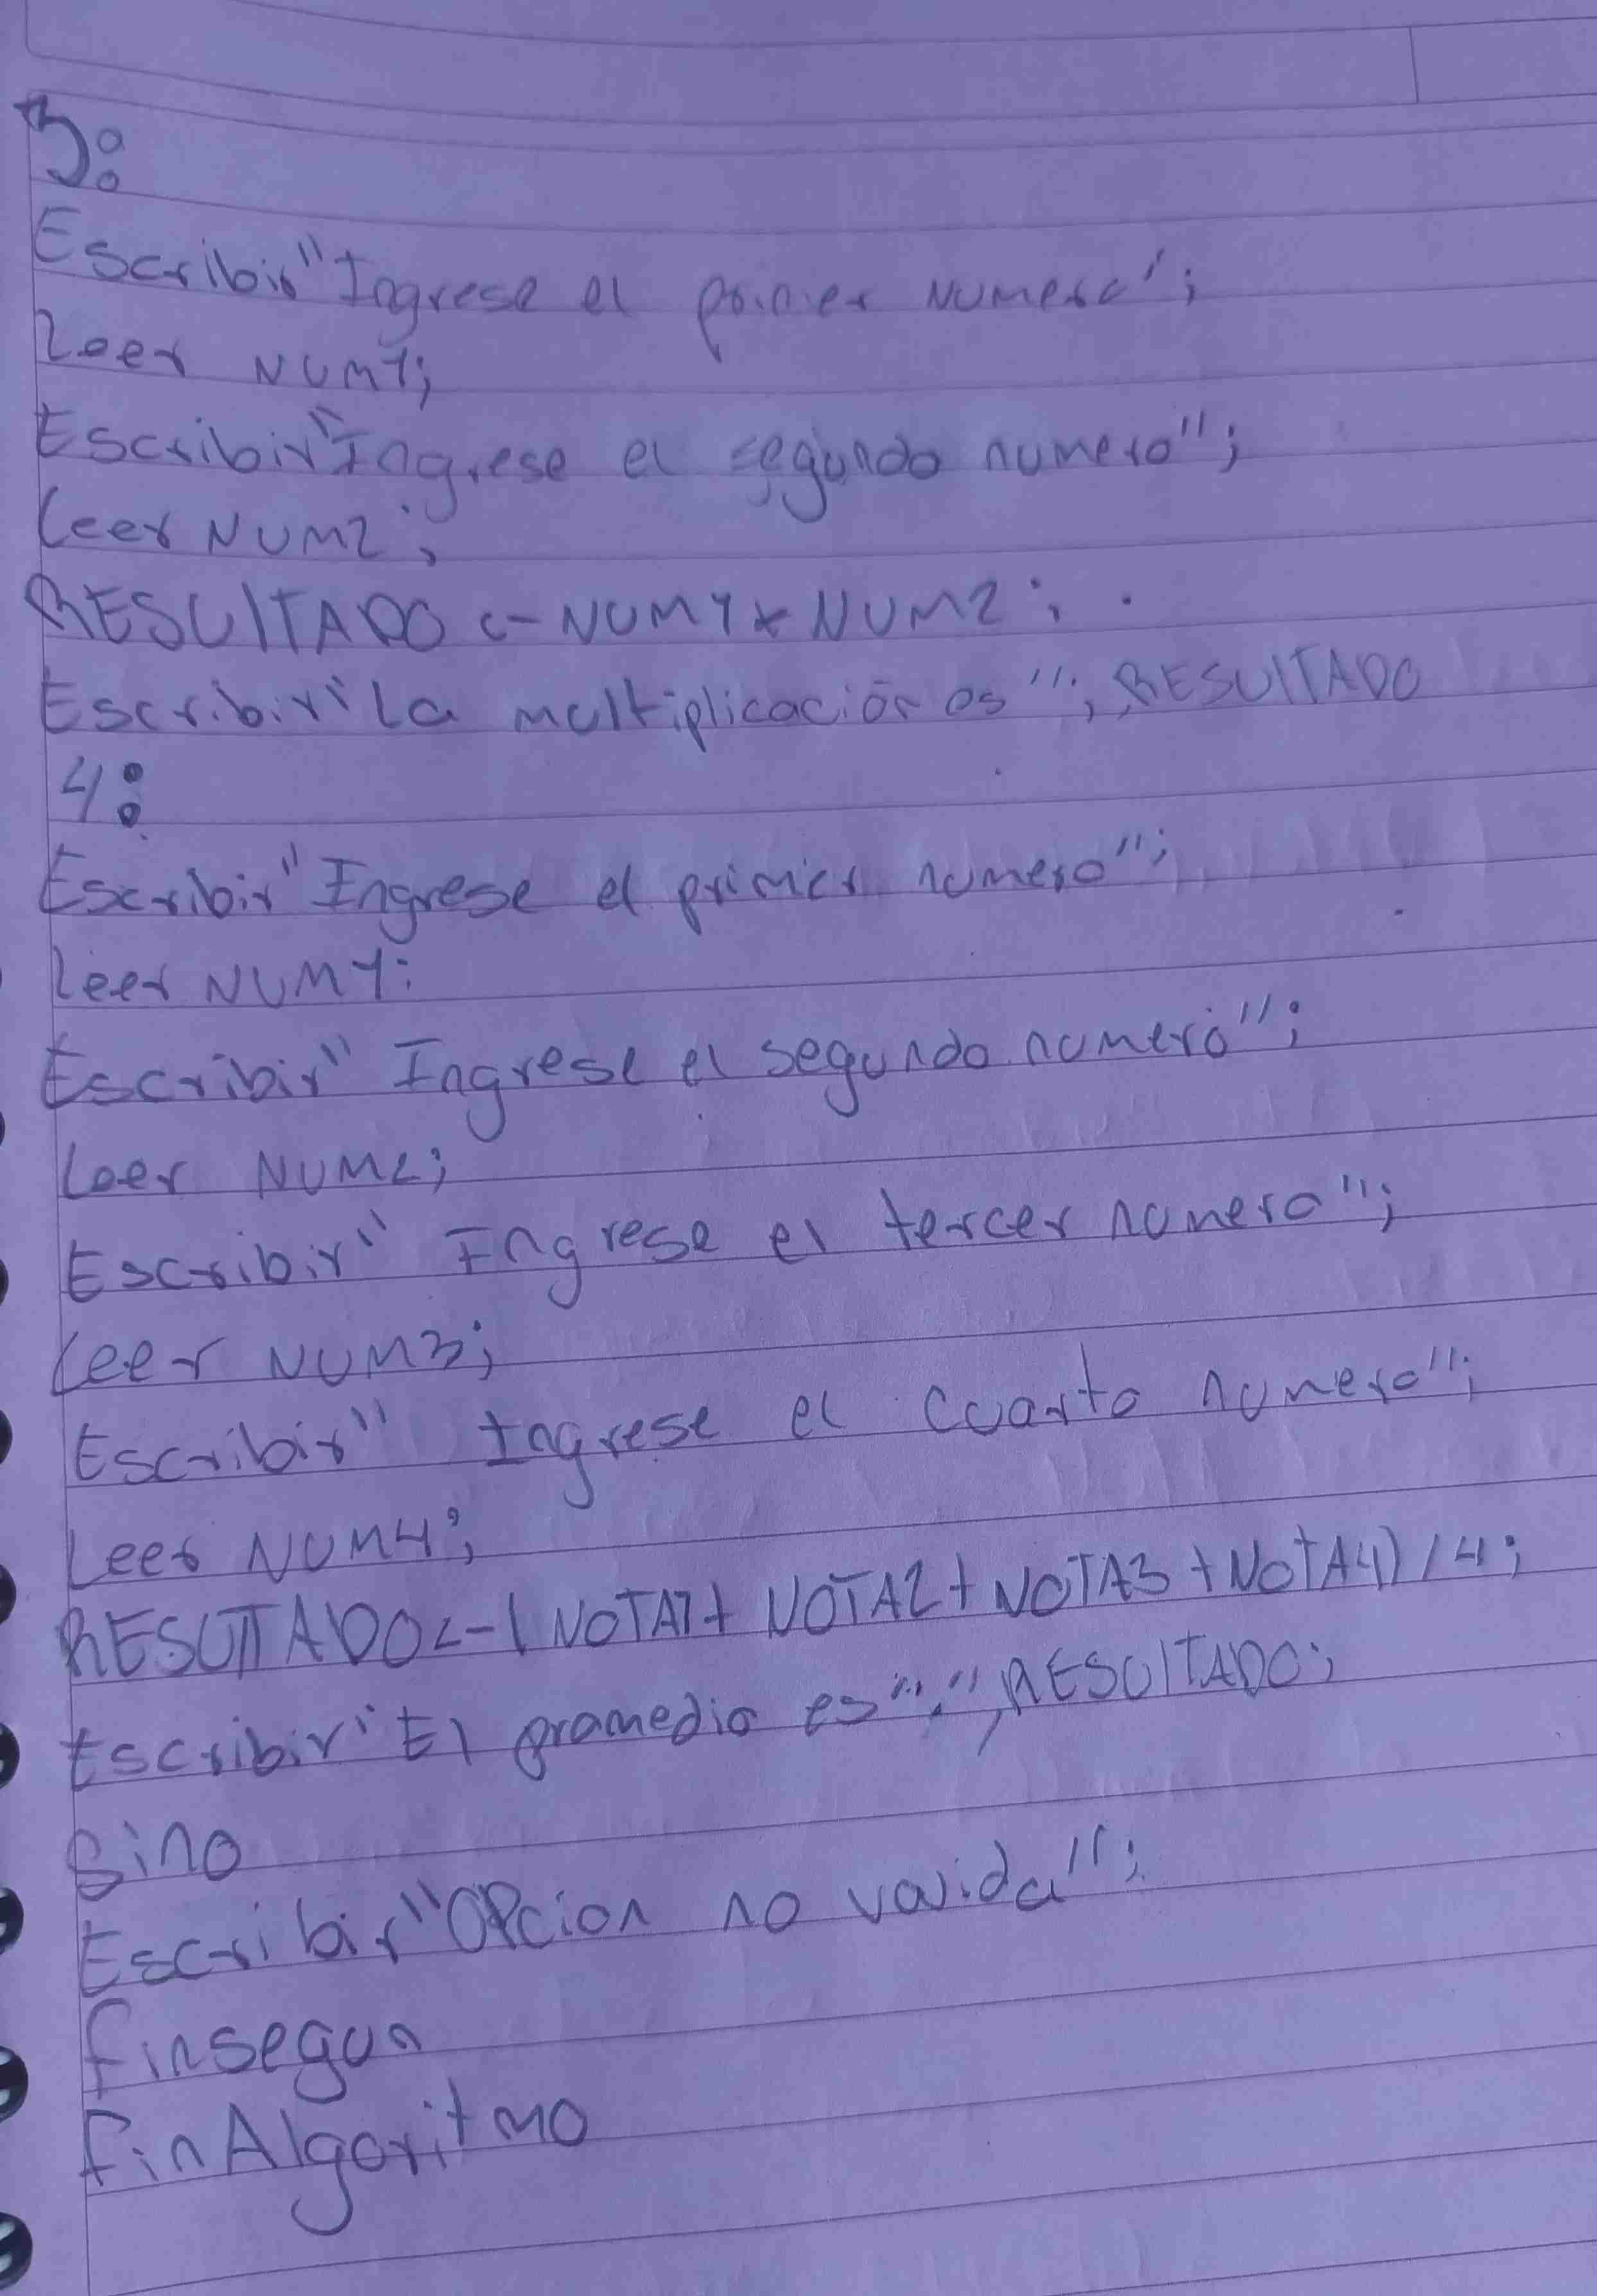 3:
Escribir"Ingrese el primer numero';
Leer NUM1;
Escribir"Ingrese el segundo numero";
Leer NUM2;
RESULTADO <- NUM1* NUM2;
Escribir"La multiplicación es";,RESULTADO
4:
Escribir"Ingrese el primer numero";
Leer NUM1:
Escribir" Ingrese el segundo numero";
Leer NUM2;
Escribir" Ingrese el tercer numero";
Leer NUM3;
Escribir" Ingrese el cuarto numero";
Leer NUM4;
RESULTADO<-(NOTA1+ NOTA2+NOTA3+NOTA4)/4;
Escribir"El promedio es":",RESULTADO;
Sino
Escribir"OPcion no valida";
finsegun
finAlgoritmo